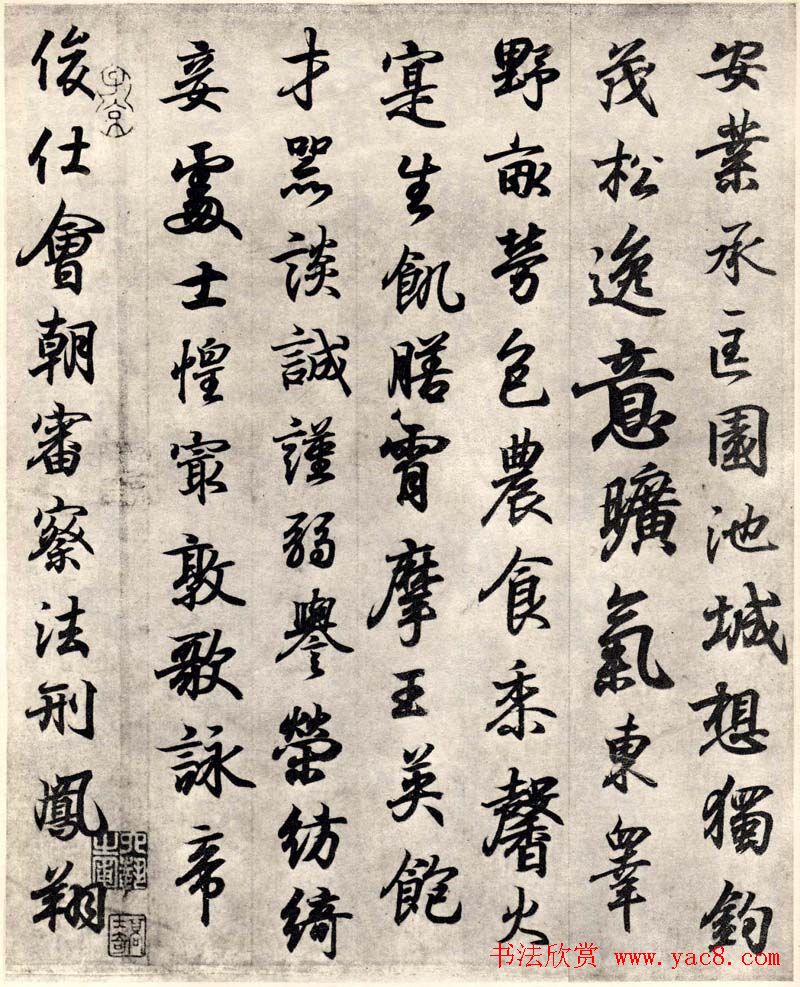 安業承匡園池城想獨鈞
茂松逸意曠氣東睾
野畝勞包農食黍馨火
寔生飢膳宵摩王英飽
才器談誠謹弱譽榮紡綺
妾處士惶㝡敦歌詠帝
俊仕會朝審察法刑鳳翔
子京
书法欣赏 www.yac8.com